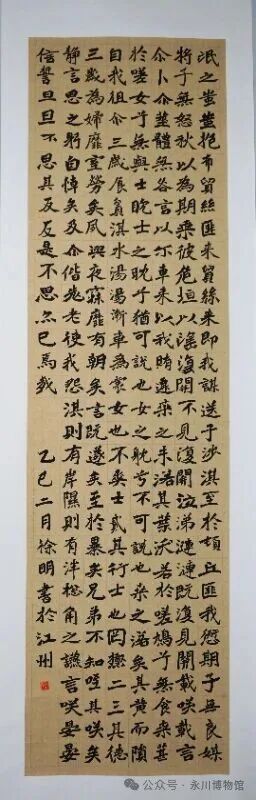 氓之蚩蚩抱布貿絲匪来貿絲来即我謀送子涉淇至於頓丘匪我愆期子無良媒
將子無怒秋以為期乘彼垝垣以望復關不見復關泣涕漣漣既見復關載咲載言
尒卜尒筮體無咎言以尔車来以我賄遷桑之未落其葉沃若於嗟鳩兮無食桑葚
於嗟女兮無與士耽士之耽兮猶可說也女之耽兮不可說也桑之落矣其黃而隕
自我徂尒三歲食貧淇水湯湯漸車帷裳女也不爽士貳其行士也罔極二三其德
三歲為婦靡室勞矣夙興夜寐靡有朝矣言既遂矣至於暴矣兄弟不知咥其咲矣
靜言思之躬自悼矣及尒偕老老使我怨淇則有岸隰則有泮總角之讌言咲晏晏
信誓旦旦不思其反反是不思亦已焉哉 乙巳二月徐明書於江州
公众号·永川博物馆